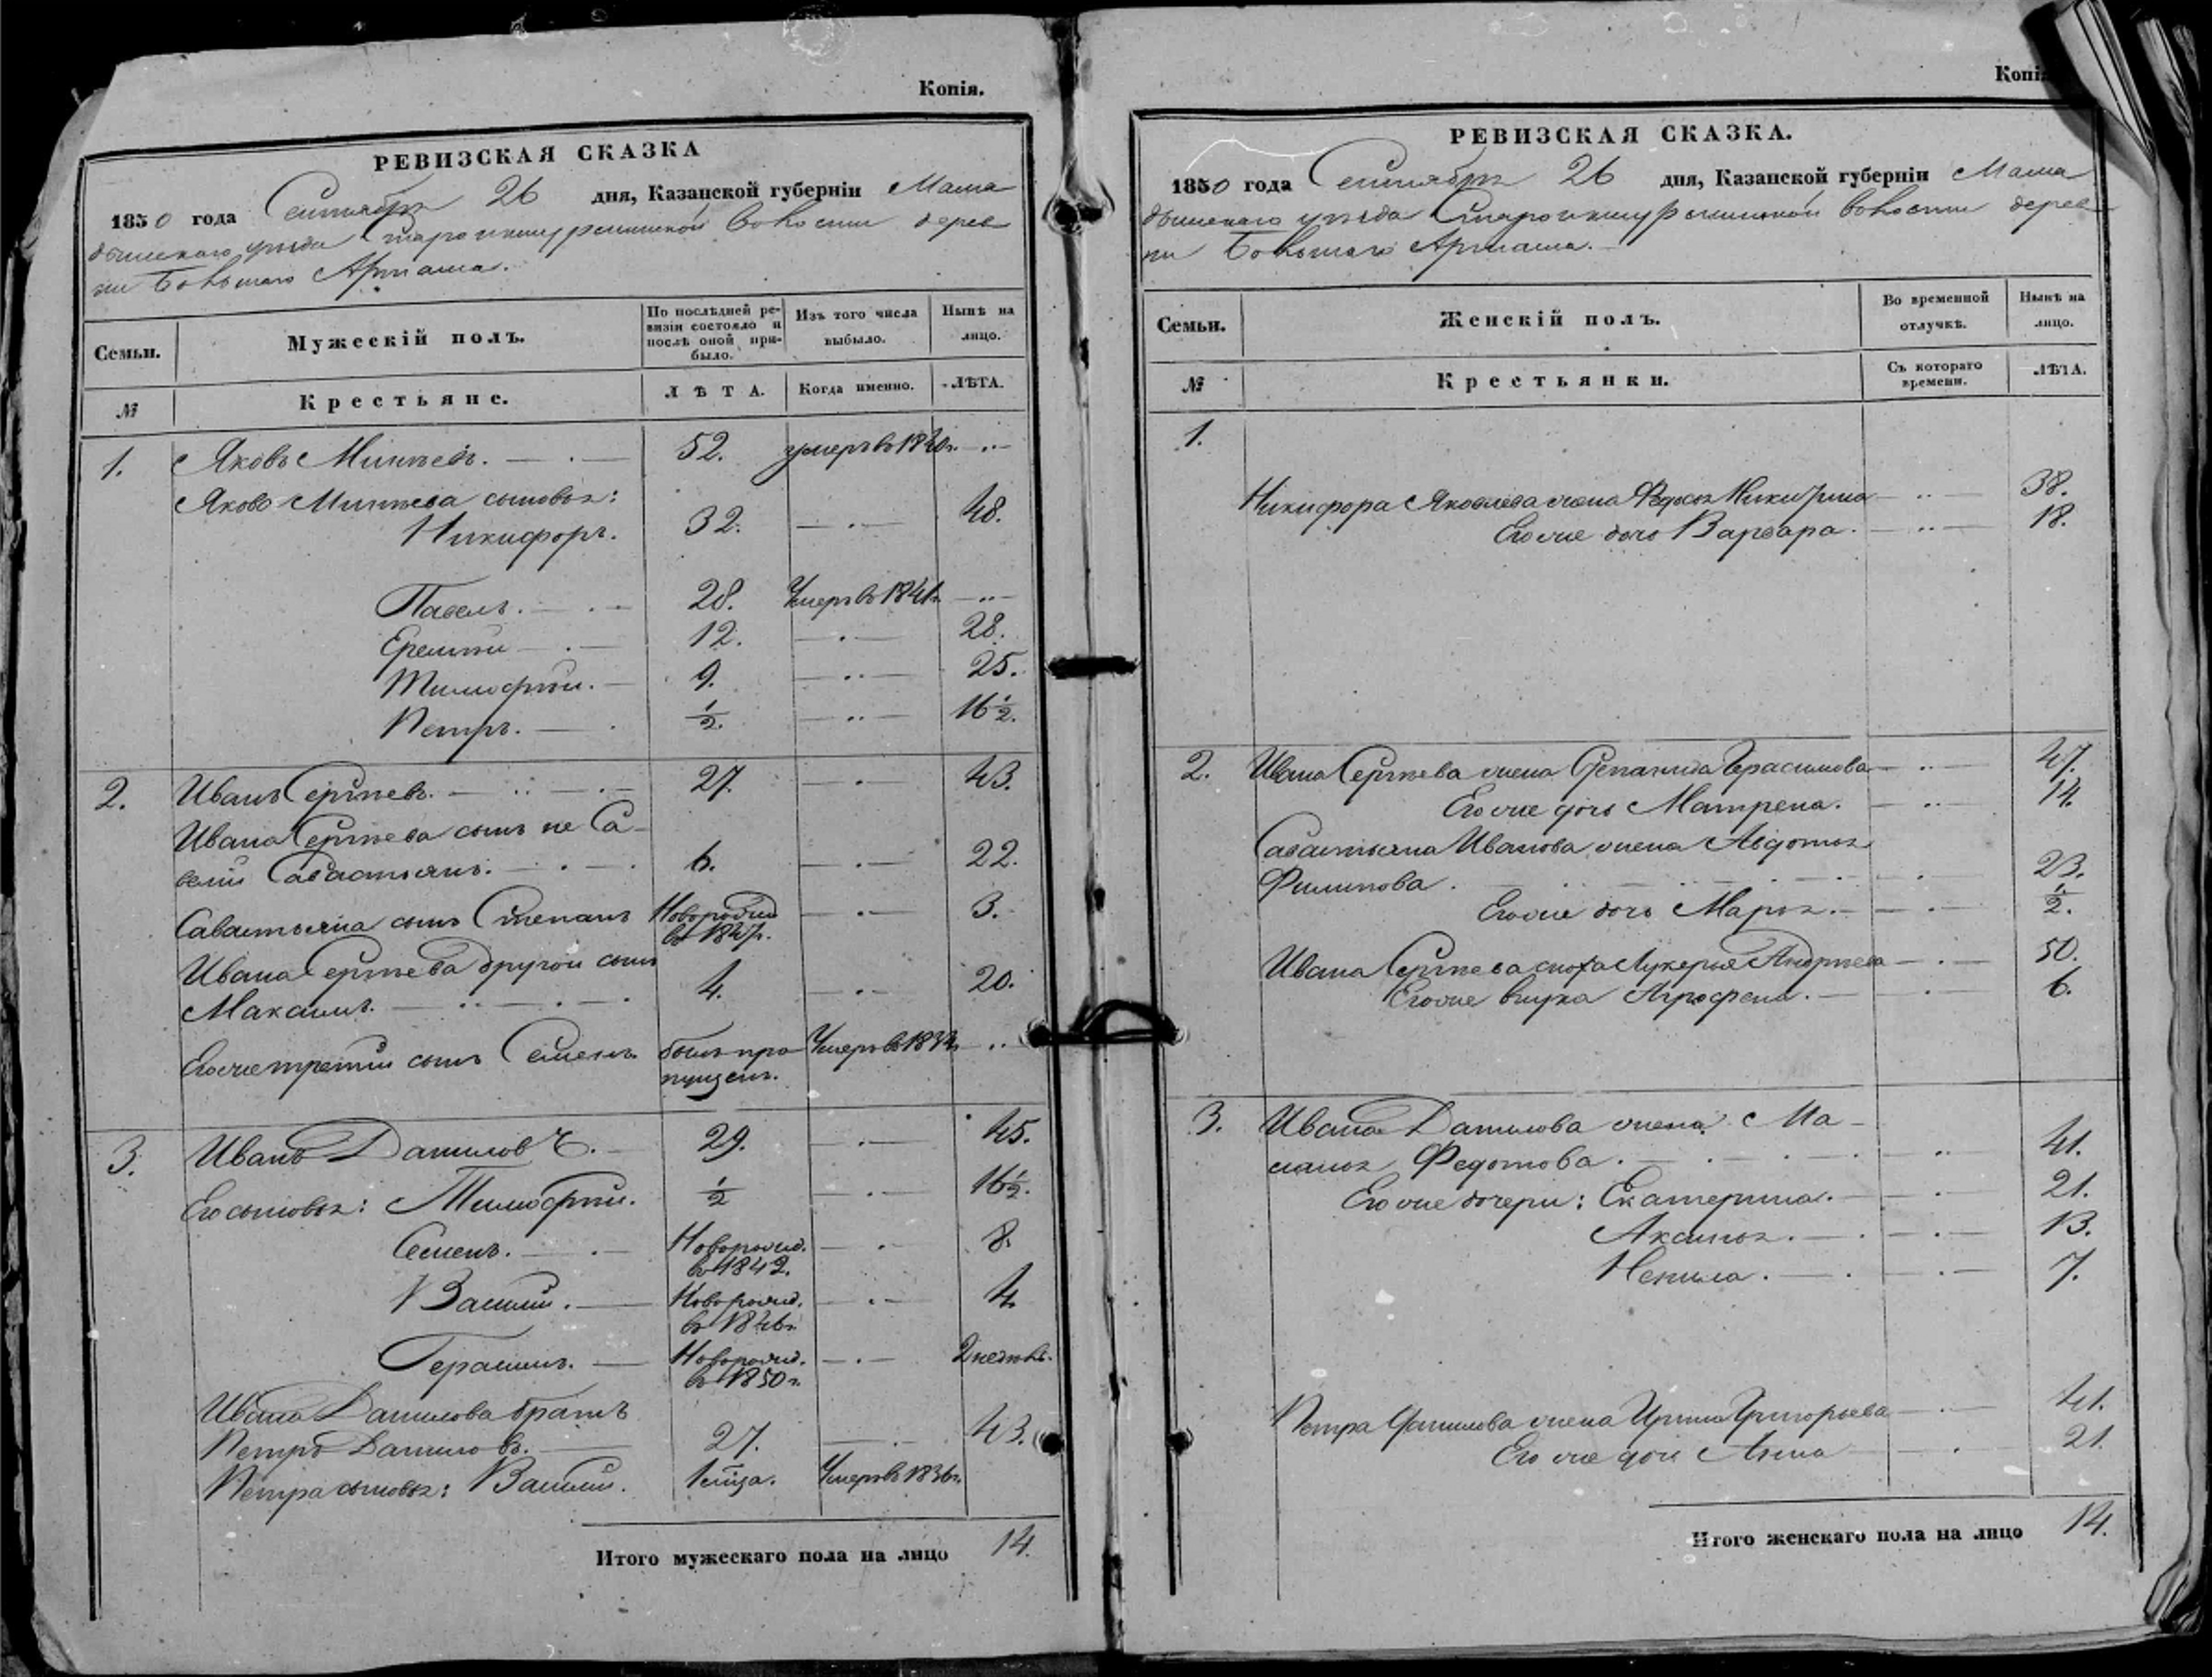 Копія.
РЕВИЗСКАЯ СКАЗКА
1850 года Сентября 26 дня, Казанской губерніи Мама
дышскаго уѣзда волости дерев
ни Большаго Арташа.
Семьи.
Мужескій полъ.
По послѣдней ре-
визіи состояло и
послѣ оной при-
было.
Изъ того числа
выбыло.
Нынѣ на
лицо.
№
Крестьяне.
ЛѢТА.
Когда именно.
ЛѢТА.
1. Яковъ Минѣевъ. 52. умеръ в 1840г.
Якова Минѣева сыновья:
Никифоръ. 32. 48.
Павелъ. 28. Умеръ в 1841г.
Еремѣй 12. 28.
Тимофѣй. 9. 25.
Петръ. ½. 16½.
2. Иванъ Сергѣевъ. 27. 43.
Ивана Сергѣева сынъ не Са-
велій Савастьянъ. 6. 22.
Савастьяна сынъ Степанъ Новорожд. 3.
в 1847г.
Ивана Сергѣева другой сынъ
Максимъ. 4. 20.
Его же третій сынъ Семенъ былъ про- Умеръ в
пущенъ.
3. Иванъ Даниловъ. 29. 45.
Его сыновья: Тимофѣй. ½ 16½.
Семенъ. Новорожд. 8.
в 1842.
Василій. Новорожд. 4.
в 1846г.
Герасимъ. Новорожд. 2 недѣль.
в 1850г.
Ивана Данилова братъ
Петръ Даниловъ. 27. 43.
Петра сыновья: Василій. Умеръ в 1836г.
Итого мужескаго пола на лицо 14.
Копія
РЕВИЗСКАЯ СКАЗКА.
1850 года Сентября 26 дня, Казанской губерніи Мама
дышскаго уѣзда волости дерев
ни Большаго Арташа.
Семьи.
Женскій полъ.
Во временной
отлучкѣ.
Нынѣ на
лицо.
№
Крестьянки.
Съ котораго
времени.
ЛѢТА.
1.
Никифора Яковлева жена Федосья Никитина 38.
Его же дочь Варвара. 18.
2. Ивана Сергѣева жена Степанида Герасимова 47.
Его же дочь Матрена. 14.
Савастьяна Иванова жена Авдотья
Филипова. 23.
Его же дочь Марья. ½.
Ивана Сергѣева сноха Лукерья Андрѣева 50.
Его же внука Агрофена. 6.
3. Ивана Данилова жена Ма-
ланья Федотова. 41.
Его же дочери: Екатерина. 21.
Аксинья. 13.
Ненила. 7.
Петра Данилова жена Ирина Григорьева 41.
Его же дочь Анна 21.
Итого женскаго пола на лицо 14.